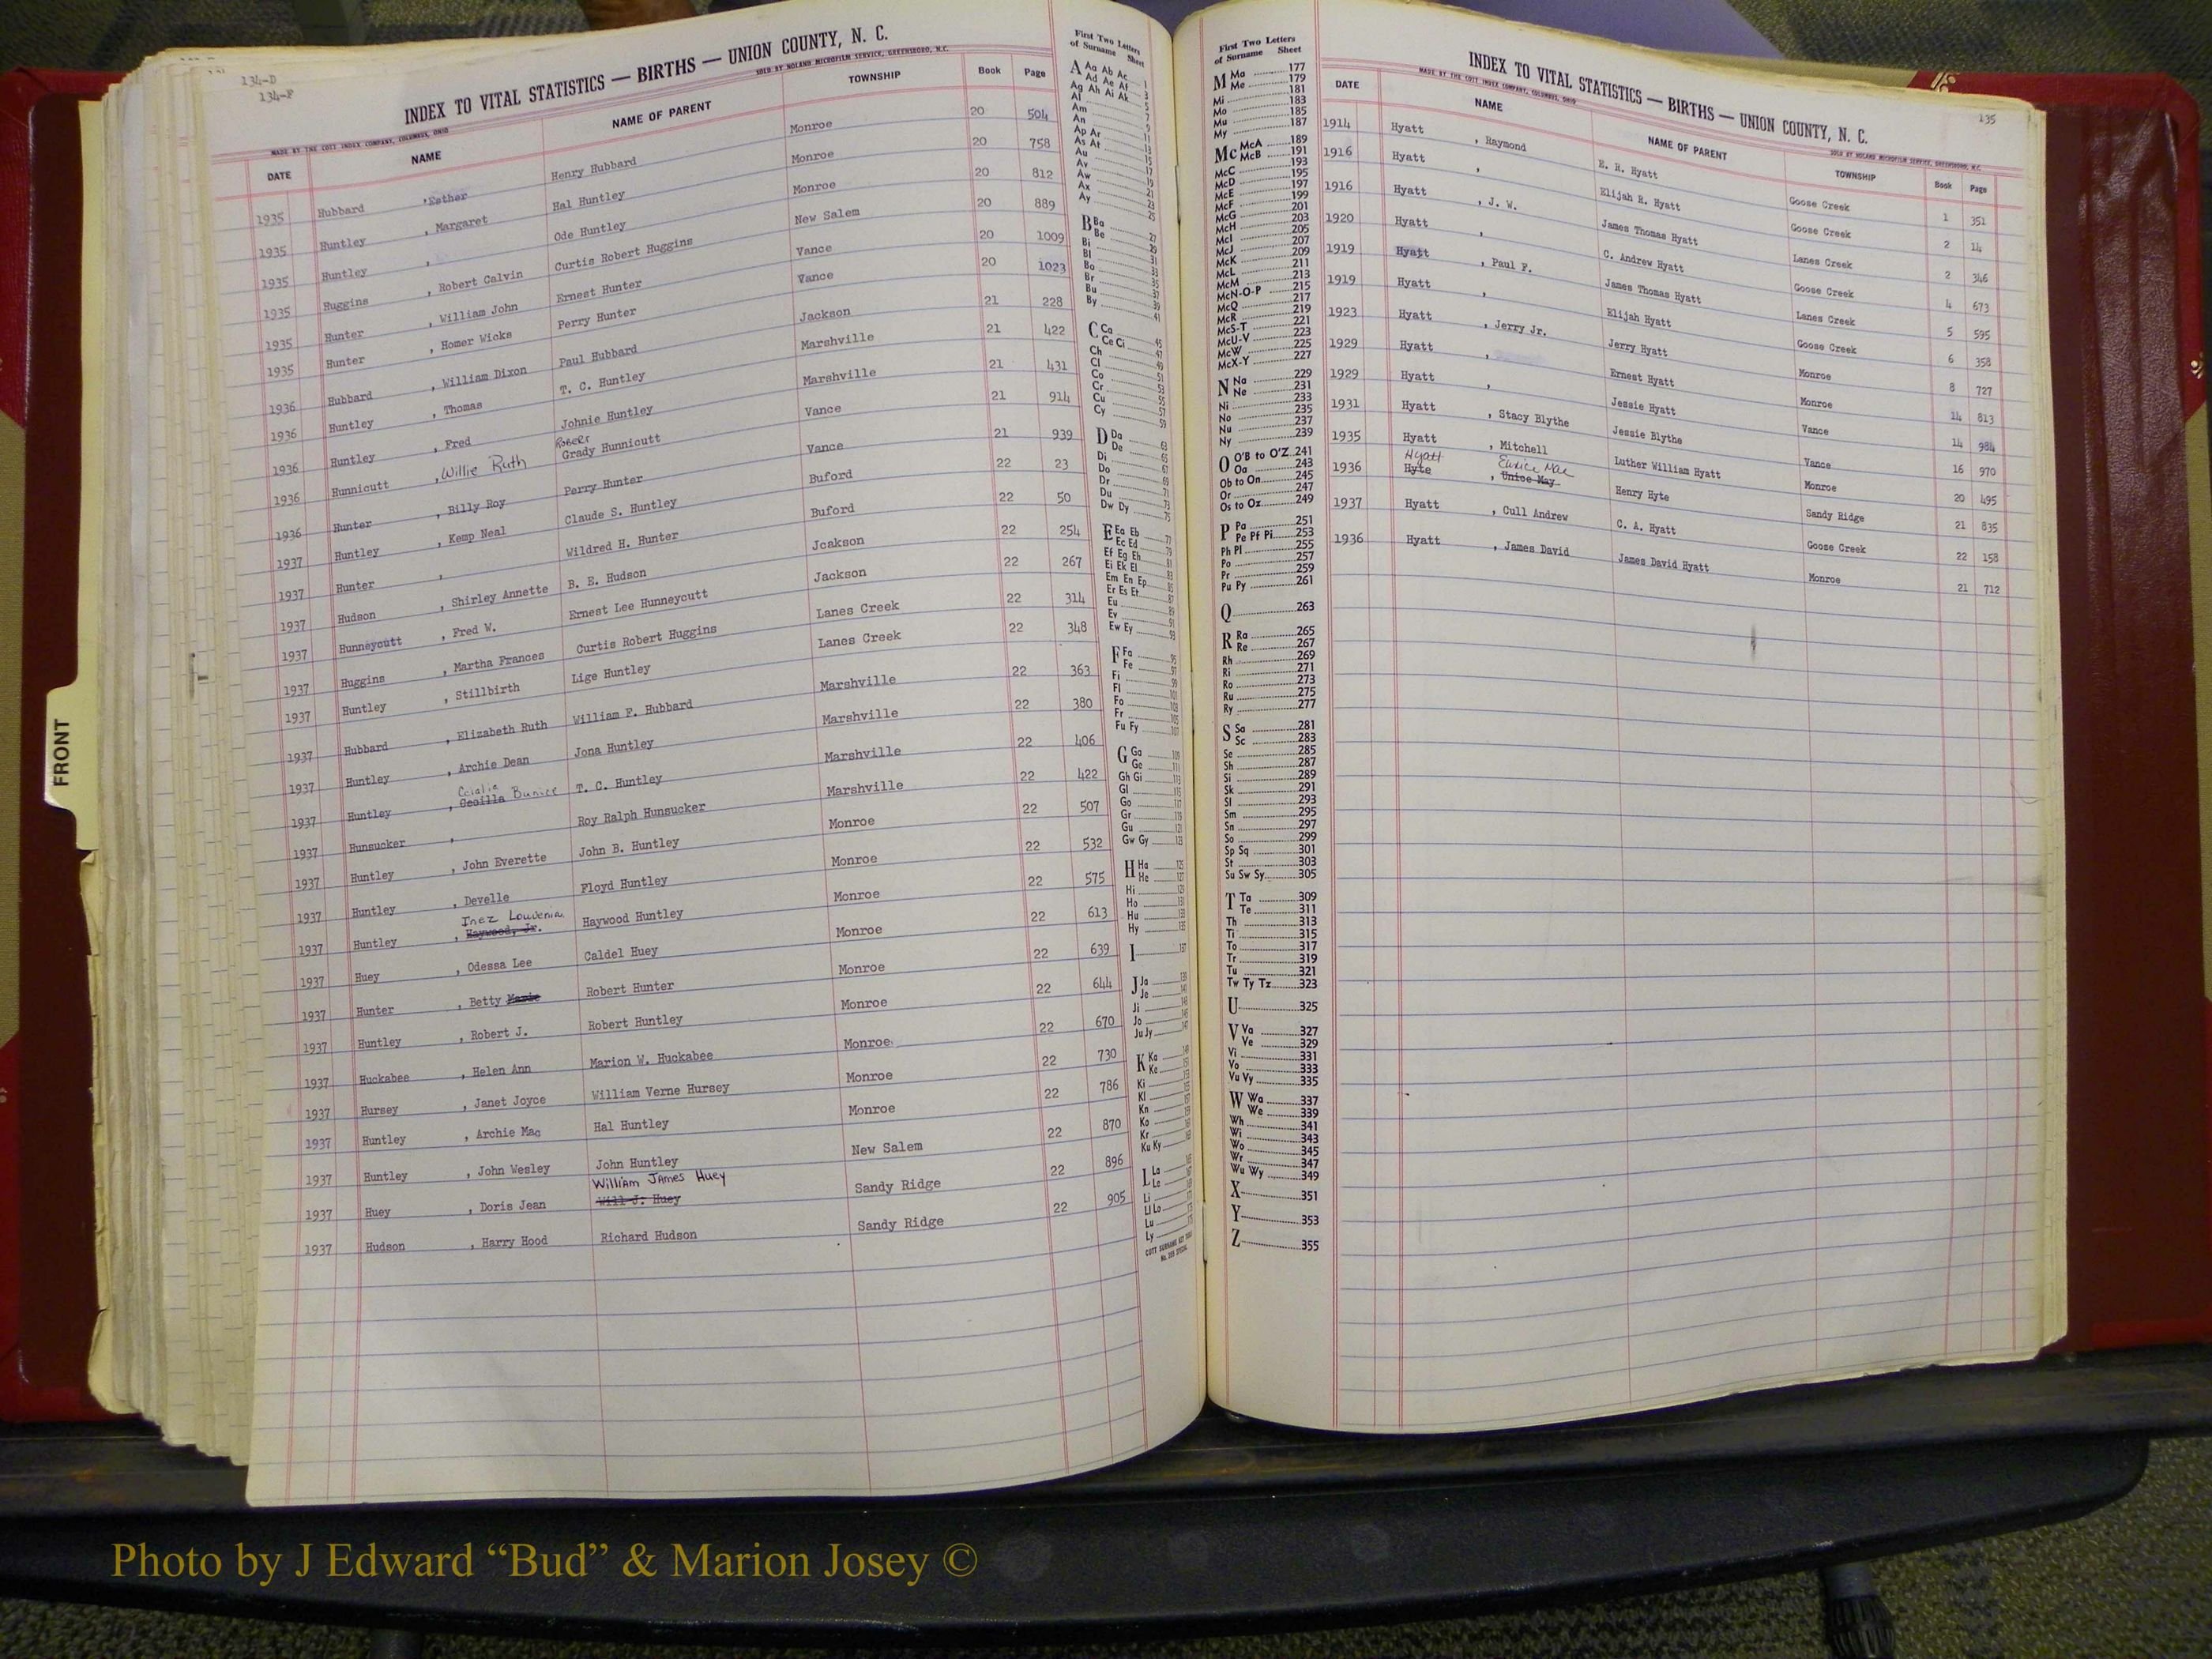 134-D
134-F
INDEX TO VITAL STATISTICS — BIRTHS — UNION COUNTY, N. C.
MADE BY THE COTT INDEX COMPANY, COLUMBUS, OHIO SOLD BY NOLAND MICROFILM SERVICE, GREENSBORO, N.C.
DATE NAME NAME OF PARENT TOWNSHIP Book Page
1935 Hubbard , Esther Henry Hubbard Monroe 20 504
1935 Huntley , Margaret Hal Huntley Monroe 20 758
1935 Huntley , Ode Huntley Monroe 20 812
1935 Huggins , Robert Calvin Curtis Robert Huggins New Salem 20 889
1935 Hunter , William John Ernest Hunter Vance 20 1009
1935 Hunter , Homer Wicks Perry Hunter Vance 20 1023
1936 Hubbard , William Dixon Paul Hubbard Jackson 21 228
1936 Huntley , Thomas T. C. Huntley Marshville 21 422
1936 Huntley , Fred Johnie Huntley Marshville 21 431
1936 Hunnicutt , Willie Ruth Robert Grady Hunnicutt Vance 21 914
1936 Hunter , Billy Roy Perry Hunter Vance 21 939
1937 Huntley , Kemp Neal Claude S. Huntley Buford 22 23
1937 Hunter , Wildred H. Hunter Buford 22 50
1937 Hudson , Shirley Annette B. E. Hudson Jcakson 22 254
1937 Hunneycutt , Fred W. Ernest Lee Hunneycutt Jackson 22 267
1937 Huggins , Martha Frances Curtis Robert Huggins Lanes Creek 22 314
1937 Huntley , Stillbirth Lige Huntley Lanes Creek 22 348
1937 Hubbard , Elizabeth Ruth William F. Hubbard Marshville 22 363
1937 Huntley , Archie Dean Jona Huntley Marshville 22 380
1937 Huntley , Cecilla Bunice T. C. Huntley Marshville 22 406
1937 Hunsucker , Roy Ralph Hunsucker Marshville 22 422
1937 Huntley , John Everette John B. Huntley Monroe 22 507
1937 Huntley , Develle Floyd Huntley Monroe 22 532
Inez Louvenia
1937 Huntley , Haywood, Jr. Haywood Huntley Monroe 22 575
1937 Huey , Odessa Lee Caldel Huey Monroe 22 613
1937 Hunter , Betty Marie Robert Hunter Monroe 22 639
1937 Huntley , Robert J. Robert Huntley Monroe 22 644
1937 Huckabee , Helen Ann Marion W. Huckabee Monroe 22 670
1937 Hursey , Janet Joyce William Verne Hursey Monroe 22 730
1937 Huntley , Archie Mac Hal Huntley Monroe 22 786
1937 Huntley , John Wesley John Huntley New Salem 22 870
William James Huey
1937 Huey , Doris Jean Will J. Huey Sandy Ridge 22 896
1937 Hudson , Harry Hood Richard Hudson Sandy Ridge 22 905
First Two Letters
of Surname Sheet
A Aa Ab Ac 1
Ad Ae Af 3
Ag Ah Ai Ak 5
Al 7
Am 9
An 11
Ap Ar 13
As At 15
Au 17
Av 19
Aw 21
Ax 23
Ay 25
B Ba 27
Be 29
Bi 31
Bl 33
Bo 35
Br 37
Bu 39
By 41
C Ca 45
Ce Ci 47
Ch 49
Cl 51
Co 53
Cr 55
Cu 57
Cy 59
D Da 63
De 65
Di 67
Do 69
Dr 71
Du 73
Dw Dy 75
E Ea Eb 77
Ec Ed 79
Ef Eg Eh 81
Ei Ek El 83
Em En Ep 85
Er Es Et 87
Eu 89
Ev 91
Ew Ey 93
F Fa 95
Fe 97
Fi 99
Fl 101
Fo 103
Fr 105
Fu Fy 107
G Ga 109
Ge 111
Gh Gi 113
Gl 115
Go 117
Gr 119
Gu 121
Gw Gy 123
H Ha 125
He 127
Hi 129
Ho 131
Hu 133
Hy 135
I 137
J Ja 139
Je 141
Ji 143
Jo 145
Ju Jy 147
K Ka 149
Ke
Ki
Kl
Kn
Ko
Kr
Ku Ky
L La
Le
Li
Ll Lo
Lu
Ly
First Two Letters
of Surname Sheet
M Ma 177
Me 179
Mi 181
Mo 183
Mu 185
My 187
Mc McA 189
McB 191
McC 193
McD 195
McE 197
McF 199
McG 201
McH 203
McI 205
McJ 207
McK 209
McL 211
McM 213
McN-O-P 215
McQ 217
McR 219
McS-T 221
McU-V 223
McW 225
McX-Y 227
N Na 229
Ne 231
Ni 233
No 235
Nu 237
Ny 239
O O'B to O'Z 241
Oa 243
Ob to On 245
Or 247
Os to Oz 249
P Pa 251
Pe Pf Pi 253
Ph Pl 255
Po 257
Pr 259
Pu Py 261
Q 263
R Ra 265
Re 267
Rh 269
Ri 271
Ro 273
Ru 275
Ry 277
S Sa 281
Sc 283
Se 285
Sh 287
Si 289
Sk 291
Sl 293
Sm 295
Sn 297
So 299
Sp Sq 301
St 303
Su Sw Sy 305
T Ta 309
Te 311
Th 313
Ti 315
To 317
Tr 319
Tu 321
Tw Ty Tz 323
U 325
V Va 327
Ve 329
Vi 331
Vo 333
Vu Vy 335
W Wa 337
We 339
Wh 341
Wi 343
Wo 345
Wr 347
Wu Wy 349
X 351
Y 353
Z 355
135
INDEX TO VITAL STATISTICS — BIRTHS — UNION COUNTY, N. C.
MADE BY THE COTT INDEX COMPANY, COLUMBUS, OHIO SOLD BY NOLAND MICROFILM SERVICE, GREENSBORO, N.C.
DATE NAME NAME OF PARENT TOWNSHIP Book Page
1914 Hyatt , Raymond E. R. Hyatt Goose Creek 1 351
1916 Hyatt , Elijah R. Hyatt Goose Creek 2 14
1916 Hyatt , J. W. James Thomas Hyatt Lanes Creek 2 346
1920 Hyatt , C. Andrew Hyatt Goose Creek 4 673
1919 Hyatt , Paul F. James Thomas Hyatt Lanes Creek 5 595
1919 Hyatt , Elijah Hyatt Goose Creek 6 358
1923 Hyatt , Jerry Jr. Jerry Hyatt Monroe 8 727
1929 Hyatt , Ernest Hyatt Monroe 14 813
1929 Hyatt , Jessie Hyatt Vance 14 984
1931 Hyatt , Stacy Blythe Jessie Blythe Vance 16 970
1935 Hyatt , Mitchell Luther William Hyatt Monroe 20 495
Hyatt Eunice Mae
1936 Hyte , Unice May Henry Hyte Sandy Ridge 21 835
1937 Hyatt , Cull Andrew C. A. Hyatt Goose Creek 22 158
1936 Hyatt , James David James David Hyatt Monroe 21 712
FRONT
Photo by J Edward “Bud” & Marion Josey ©